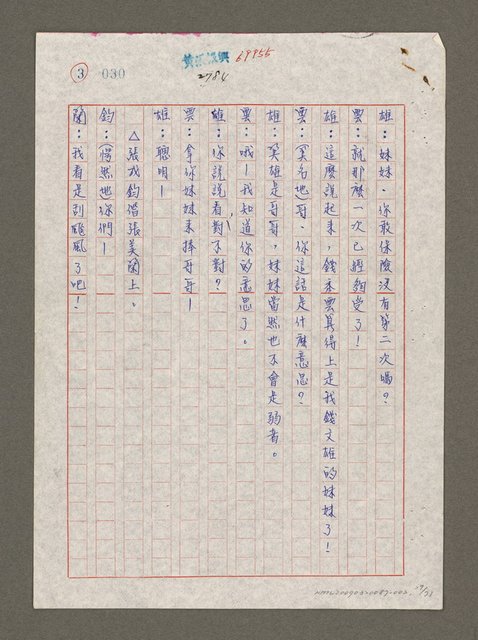 3
030
69955
2984
雄：妹妹，你敢保險沒有第二次嗎？
雲：就那麼一次已經夠受了！
雄：這麼說起來，錢秀雲真得上是我錢文雄的妹妹了！
雲：(莫名地)哥，你這話是什麼意思？
雄：英雄是哥哥，妹妹當然也不會是弱者。
雲：哦！我知道你的意思了。
雄：你說說看對不對？
雲：拿你妹妹來捧哥哥！
雄：聰明！
△張成鈞偕張美蘭上。
鈞：(愕然地)你們！
蘭：我看是刮颱風了吧！